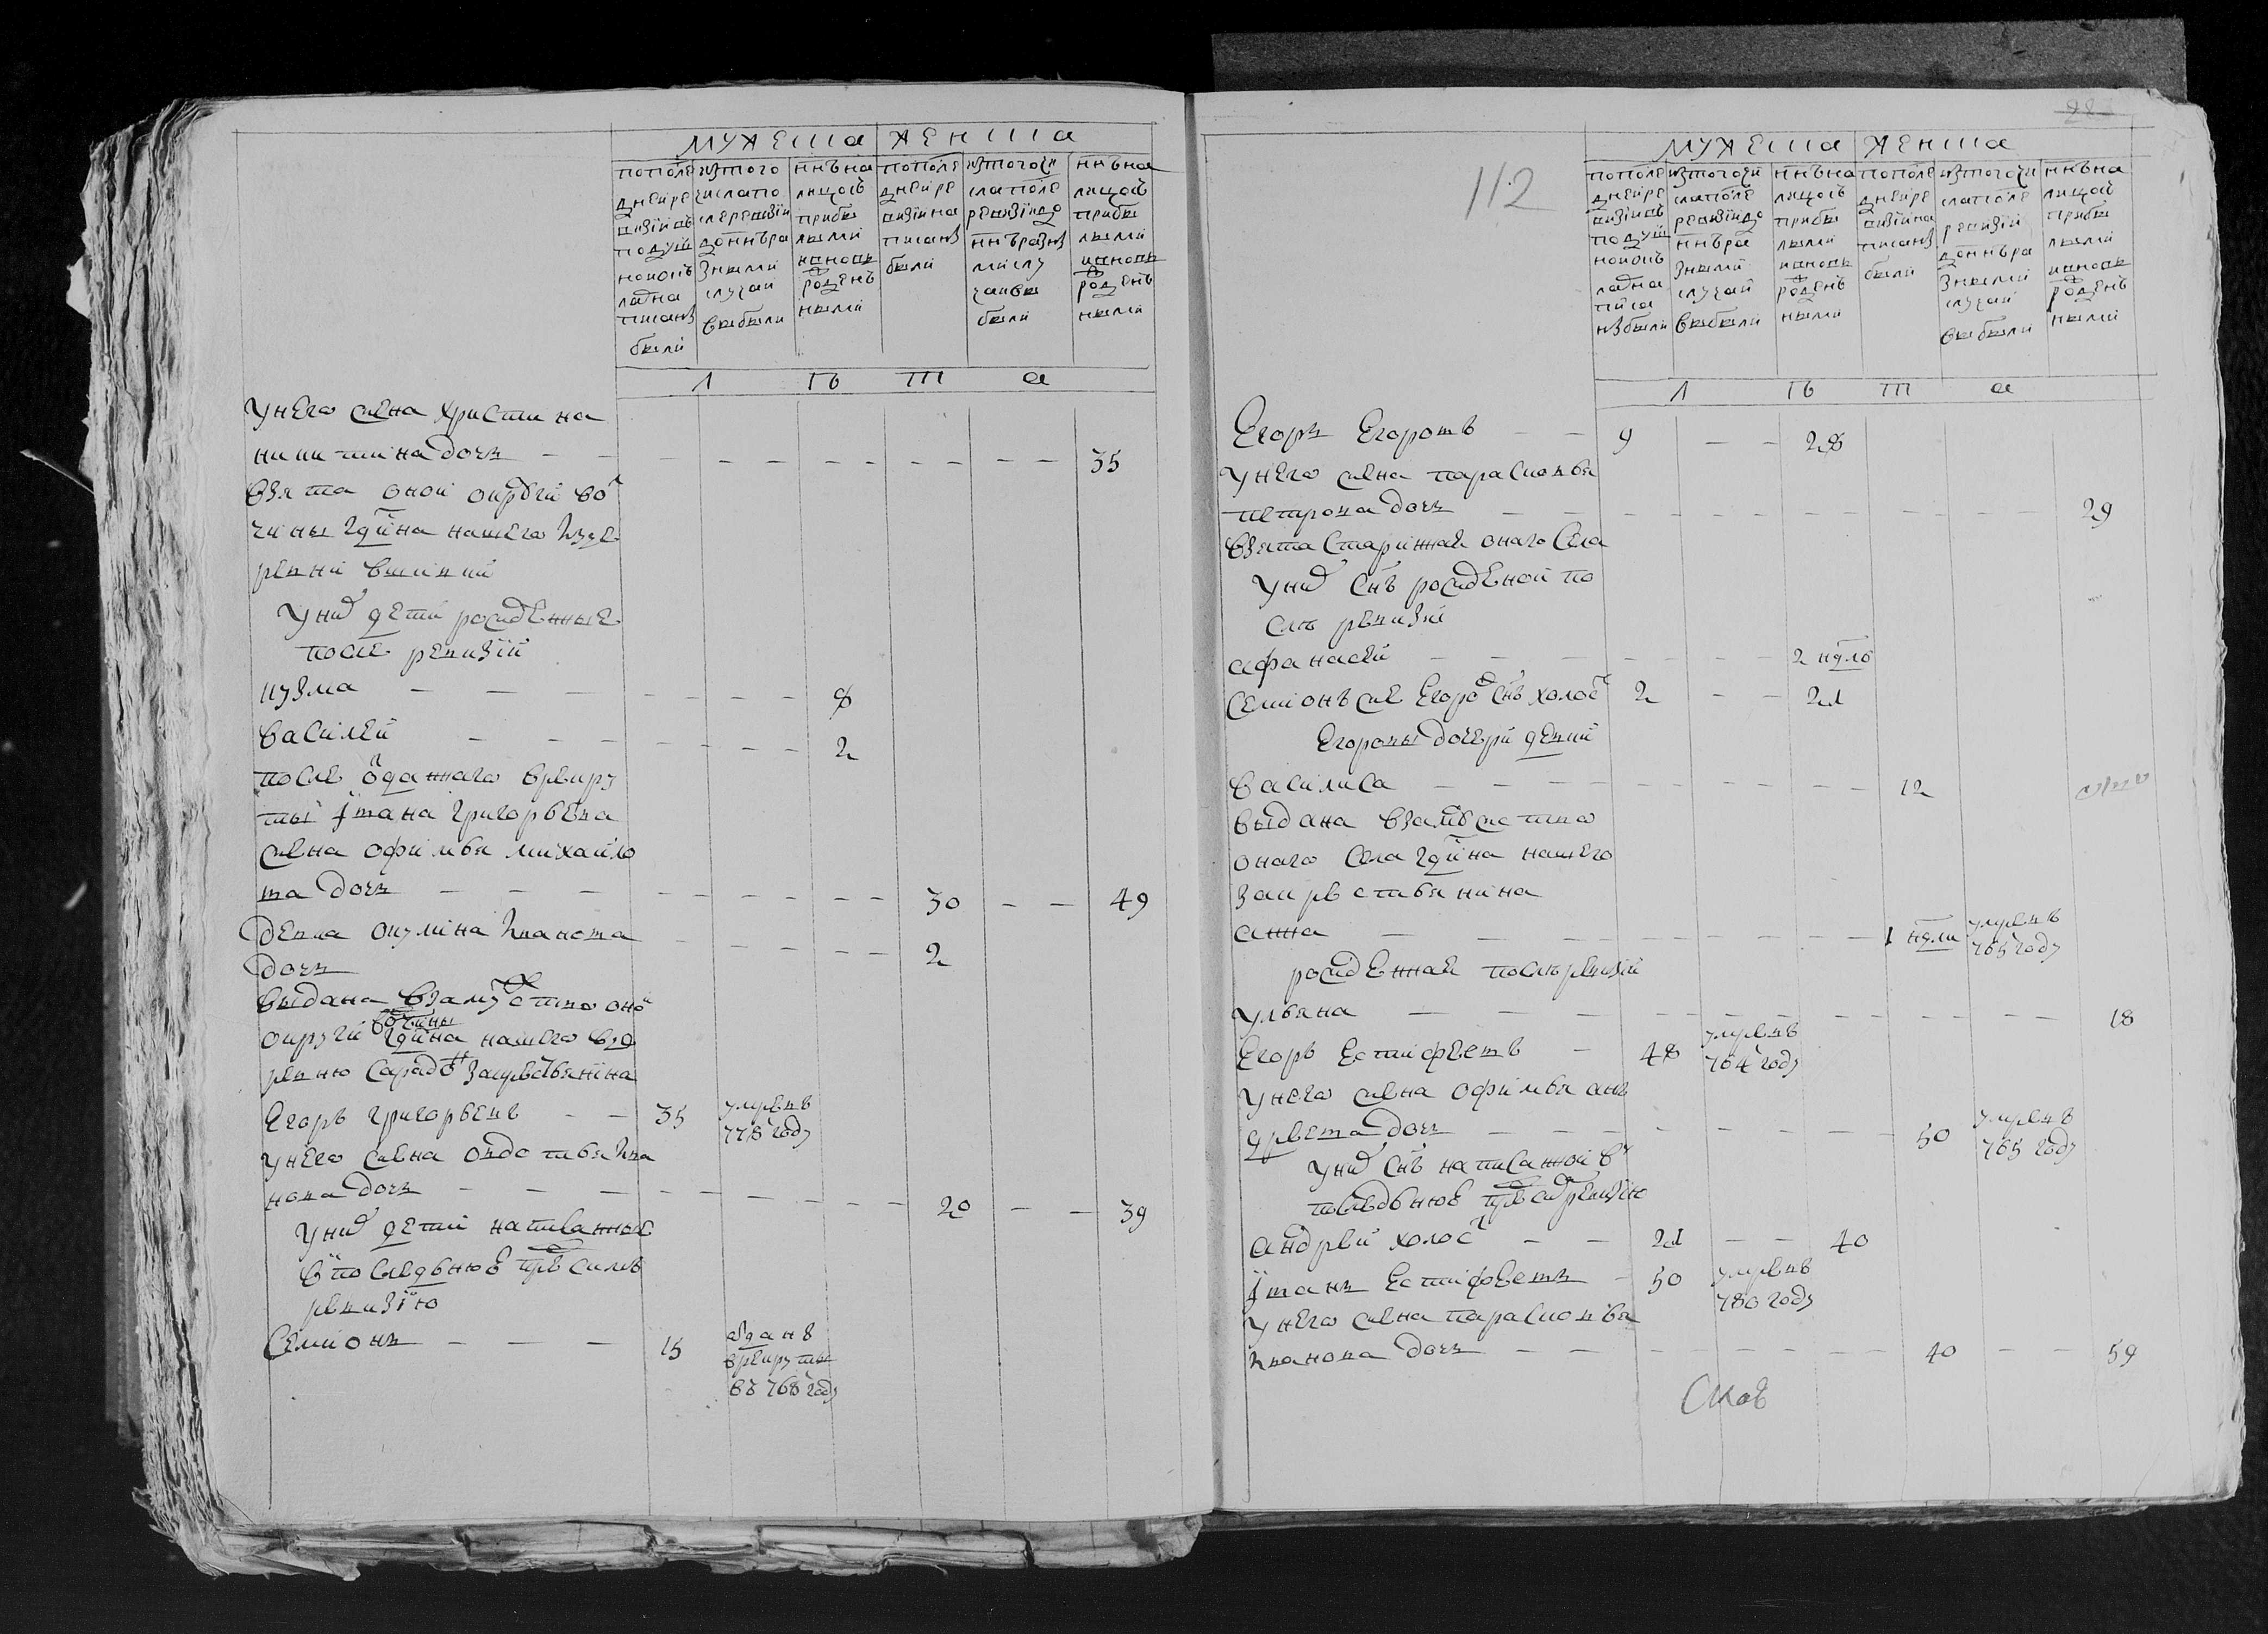 МУЖЕСКА ЖЕНСКА
пополе
дней ре
визии въ
подуш
номокъ
ладна
писанs
были
изтого
числапо
слеревизии
до ннъ ра
зными
случаи
выбыли
ннъ на
лицосъ
прибы
лыми
и вновь
рожден
ными
пополе
дней ре
визии на
писанs
были
изтогочи
слаполе
ревизии до
ннъ разнs
ми слу
чаи вы
были
ннъ на
лицосъ
прибы
лыми
и вновь
рожден
ными
Л ѣ т а
у него жена христина
никитина дочь — 35
взята оной округи во
чины гдина нашего
у них дети рожденные
после ревизии
кузма — 8
василей — 2
после отданнаго врекру
ты ивана григорьева
жена офимья михайло
ва дочь — 30 — 49
девка акулина иванова
дочь — 2
выдана взамужство оной
округи вочины гдина нашего вде
ревню закрестьянина
Егоръ григорьевъ — 35 умрев
778 году
у него жена авдотья ива
нова дочь — 20 — 39
у них дети написанные
в последнюю пред сим
ревизию
Семионъ — 15 отдан в
врекруты
въ 768 году
112
МУЖЕСКА ЖЕНСКА
пополе
дней ре
визии въ
подуш
номокъ
ладна
писа
нs были
изтогочи
слаполе
ревизии до
ннъ ра
зными
случаи
выбыли
ннъ на
лицосъ
прибы
лыми
и вновь
рожден
ными
пополе
дней ре
визии на
писанs
были
изтогочи
слаполе
ревизии
до ннъ ра
зными
случаи
выбыли
ннъ на
лицосъ
прибы
лыми
и вновь
рожден
ными
Л ѣ т а
Егоръ Егоровъ — 9 — 28
у него жена парасковья
петрова дочь — 29
взята старинная онаго села
у них снъ рожденой по
слѣ ревизии
афанасей — 2 ндлѣ
Семионъ же Егоровъ снъ холостъ 2 — 21
Егоровы дочери девки
василиса — 12
выдана взамужство
онаго села гдина нашего
закрестьянина
анна — 1 ндли умре въ
765 году
рожденная послѣ ревизии
ульяна — 18
Егоръ Естифѣевъ — 48 умре въ
764 году
у него жена офимья ан
дрѣева дочь — 50 умре въ
765 году
у них снъ написаной в
последнюю пред сим ревизию
андрѣй холостъ — 21 — 40
иванъ Естифѣевъ — 50 умре въ
780 году
у него жена парасковья
иванова дочь — 40 — 59